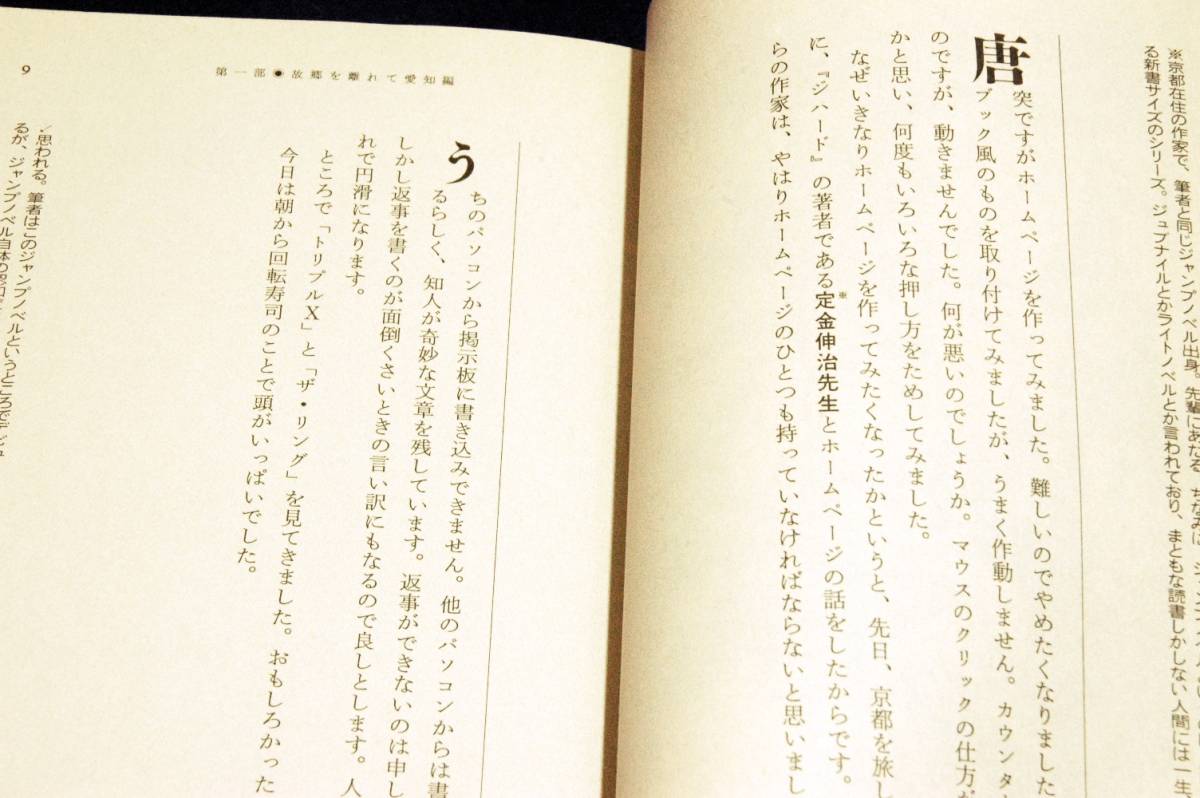 ※京都在住の作家で、筆者と同じジャンプノベル出身。先輩にあたる。ちなみに
る新書サイズのシリーズ。ジュブナイルとかライトノベルとか言われており、まともな読書しかしない人間には一生
唐突ですがホームページを作ってみました。難しいのでやめたくなりました
ブック風のものを取り付けてみましたが、うまく作動しません。カウンタ
のですが、動きませんでした。何が悪いのでしょうか。マウスのクリックの仕方
かと思い、何度もいろいろな押し方をためしてみました。
なぜいきなりホームページを作ってみたくなったかというと、先日、京都を旅し
に、『ジハード』の著者である定金伸治先生※とホームページの話をしたからです。
らの作家は、やはりホームページのひとつも持っていなければならないと思いまし
第一部●故郷を離れて愛知編
うちのパソコンから掲示板に書き込みできません。他のパソコンからは書
るらしく、知人が奇妙な文章を残しています。返事ができないのは申し
しかし返事を書くのが面倒くさいときの言い訳にもなるので良しとします。人
れで円滑になります。
ところで「トリプルX」と「ザ・リング」を見てきました。おもしろかった
今日は朝から回転寿司のことで頭がいっぱいでした。
思われる。筆者はこのジャンプノベルというところでデビュ
るが、ジャンプノベル自体の
9